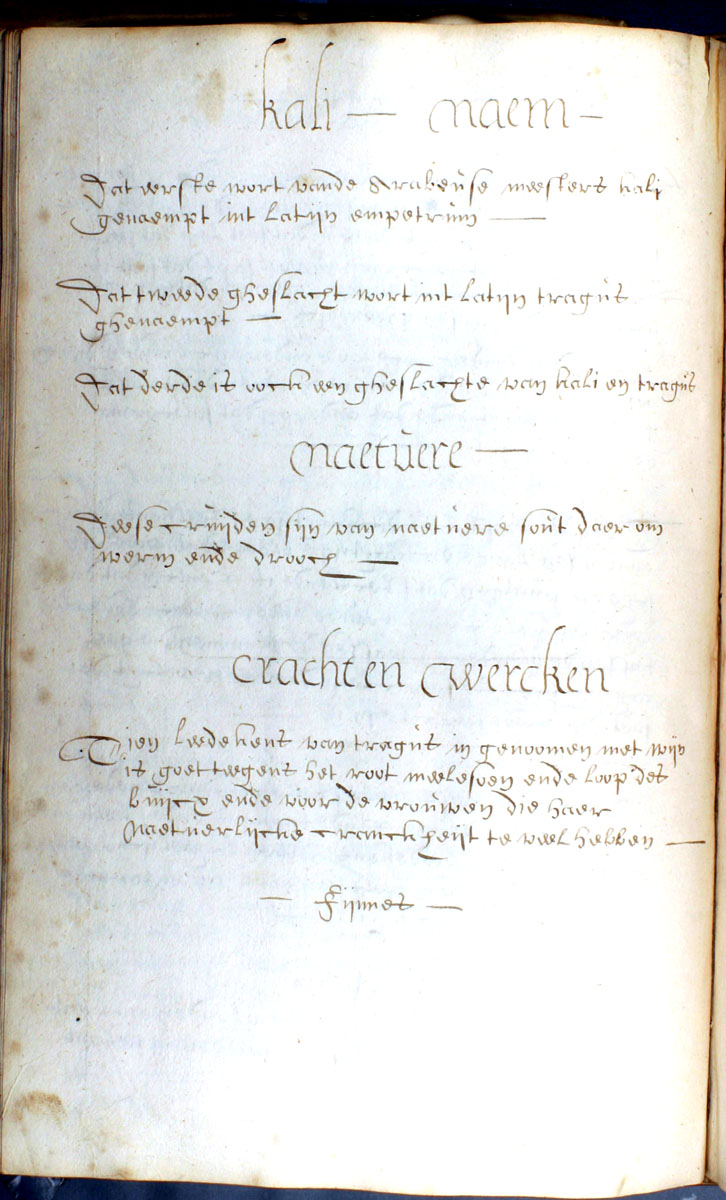 kali — naem —
Dat eerste wort vande Arabeŭse meesters kali
genaempt int Latijn empetrŭm —
Dat tweede gheslacht wort int Latijn tragŭs
ghenaempt —
Dat derde is oock een gheslachte van kali en tragŭs
naetŭere —
Deese crŭijden sijn van naetŭere soŭt daer om
werm ende drooch —
crachten Wercken
Tien Leedekens van tragŭs in genoomen met wijn
is goet teegens het root meelesoen ende loop des
bŭijcx ende voor de vroŭwen die haer
naetŭerlijcke cranckheijt te veel hebben —
— Fijnnes —